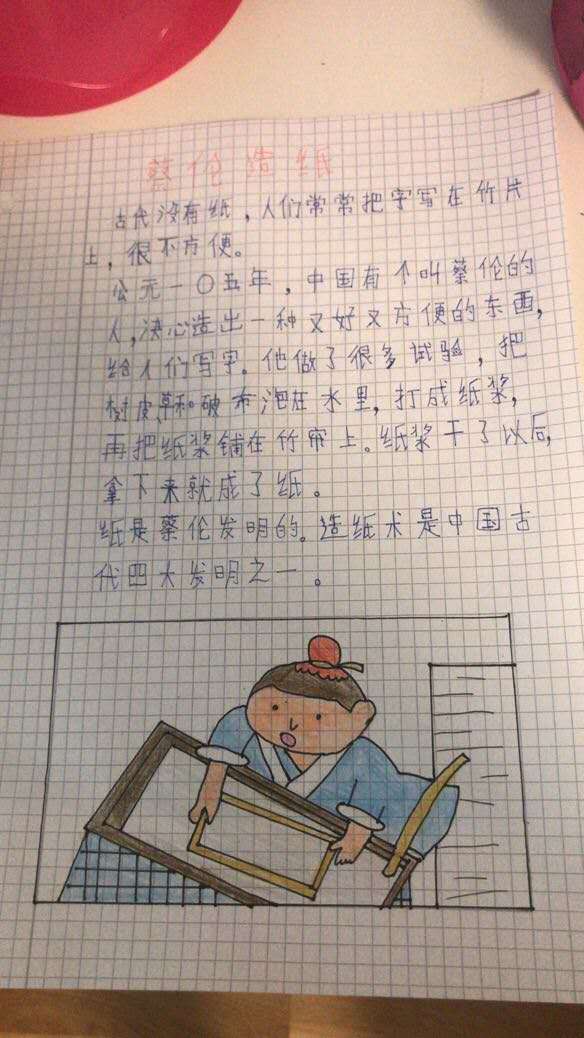 蔡伦造纸
古代没有纸，人们常常把字写在竹片
上，很不方便。
公元一〇五年，中国有个叫蔡伦的
人，决心造出一种又好又方便的东西，
给人们写字。他做了很多试验，把
树皮、草和破布泡在水里，打成纸浆，
再把纸浆铺在竹帘上。纸浆干了以后，
拿下来就成了纸。
纸是蔡伦发明的。造纸术是中国古
代四大发明之一。